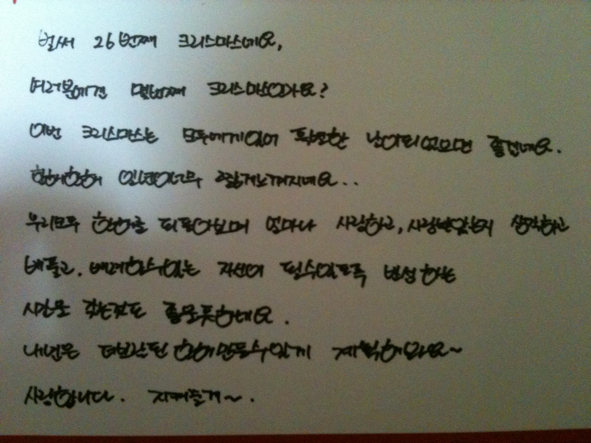 벌써 26번째 크리스마스네요,
여러분에겐 몇번째 크리스마스인가요?
이번 크리스마스는 모두에게있어 특별한 날이되었으면 좋겠네요.
일년이너무 짧게느껴지네요..
우리모두 한해를 되돌아보며 얼마나 사랑하고, 사랑받았는지 생각하고
베풀고, 배려할수있는 자신이 될수있도록 반성하는
시간을 갖는것도 좋을듯하네요.
내년은 더보람된 한해만들수있게 계획해봐요~
사랑합니다. 지켜줄게~.